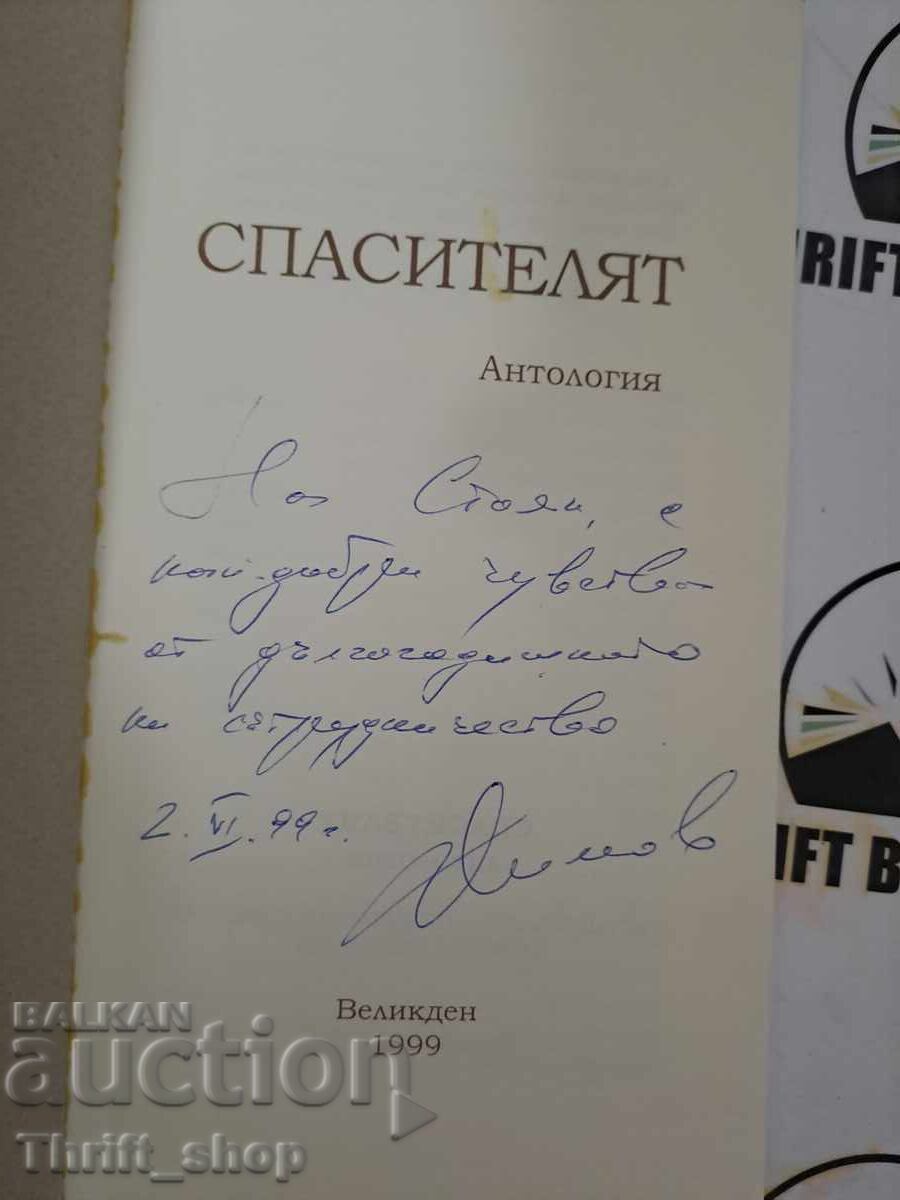 СПАСИТЕЛЯТ
Антология
На Стоян, с
най-добри чувства
от дългогодишното
ни сътрудничество
2. VI. 99 г.
Великден
1999
RIFT
IFT B
BALKAN
auction
Thrift_shop